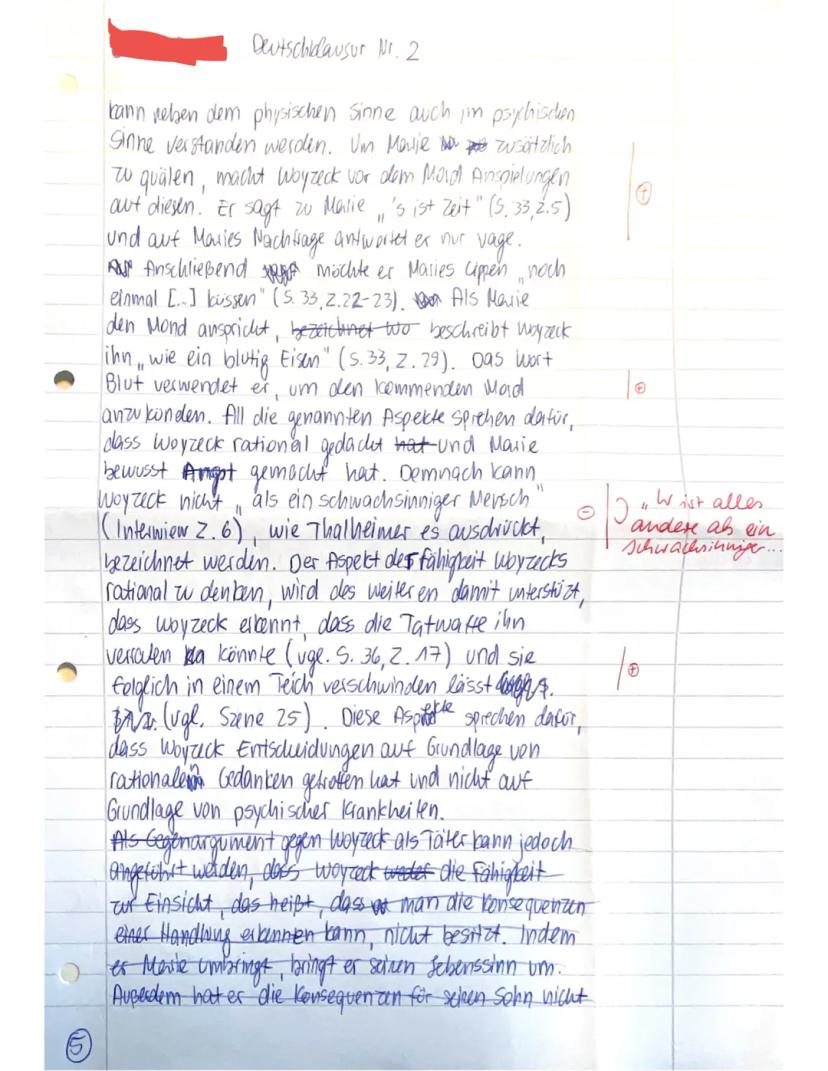 Deutschklausur Nr. 2
kann neben dem physischen Sinne auch im psychischen
Sinne verstanden werden. Um Marie zusätzlich
zu quälen, macht Woyzeck vor dem Mord Anspielungen
auf diesen. Er sagt zu Marie „'s ist Zeit" (S. 33, Z. 5)
und auf Maries Nachfrage antwortet er nur vage.
Anschließend möchte er Maries Lippen „noch
einmal [...] küssen" (S. 33, Z. 22-23). Als Marie
den Mond anspricht, bezeichnet Wo beschreibt Woyzeck
ihn „wie ein blutig Eisen" (S. 33, Z. 29). Das Wort
Blut verwendet er, um den kommenden Mord
anzukünden. All die genannten Aspekte sprechen dafür,
dass Woyzeck rational gedacht hat und Marie
bewusst Angst gemacht hat. Demnach kann
Woyzeck nicht „als ein schwachsinniger Mensch"
(Interwiew Z. 6), wie Thalheimer es ausdrückt,
bezeichnet werden. Der Aspekt der Fähigkeit Woyzecks
rational zu denken, wird des weiteren damit unterstüzt,
dass Woyzeck erkennt, dass die Tatwaffe ihn
verraten könnte (vgl. S. 36, Z. 17) und sie
folglich in einem Teich verschwinden lässt
(vgl. Szene 25). Diese Aspekte sprechen dafür,
dass Woyzeck Entscheidungen auf Grundlage von
rationalen Gedanken getroffen hat und nicht auf
Grundlage von psychischer Krankheiten.
Als Gegenargument gegen Woyzeck als Täter kann jedoch
angeführt werden, dass Woyzeck weder die Fähigkeit
zur Einsicht, das heißt, dass man die Konsequenzen
einer Handlung erkennen kann, nicht besitzt. Indem
er Marie umbringt, bringt er seinen Lebenssinn um.
Außerdem hat er die Konsequenzen für seinen Sohn nicht
5
+
+
- „W ist alles
andere als ein
schwachsinniger...
+